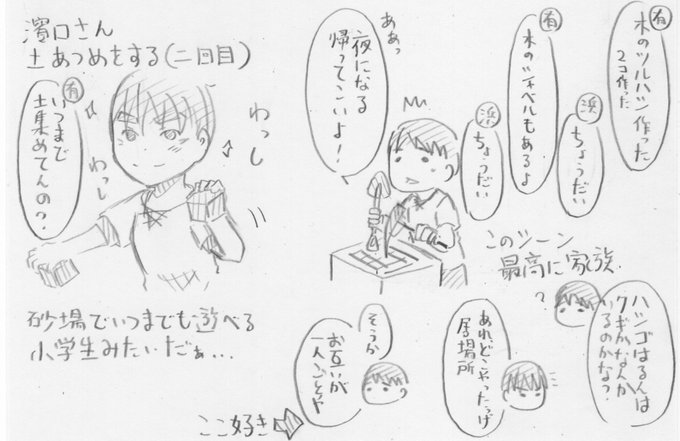 濱口さん
土あつめをする(二回目)
有
いつまで
土集めてんの?
わっし
わっし
砂場でいつまでも遊べる
小学生みたいだぁ…
有
木のツルハシ作った
2コ作った
浜
ちょうだい
有
木のシャベルもあるよ
浜
ちょうだい
ああっ
夜になる
帰ってこいよ!
このシーン
最高に家族
?
ハシゴはるんは
クギかなんか
いるのかな?
あれ、どこやったっけ
居場所
そうか
お互いが
一人ごとや
ここ好き